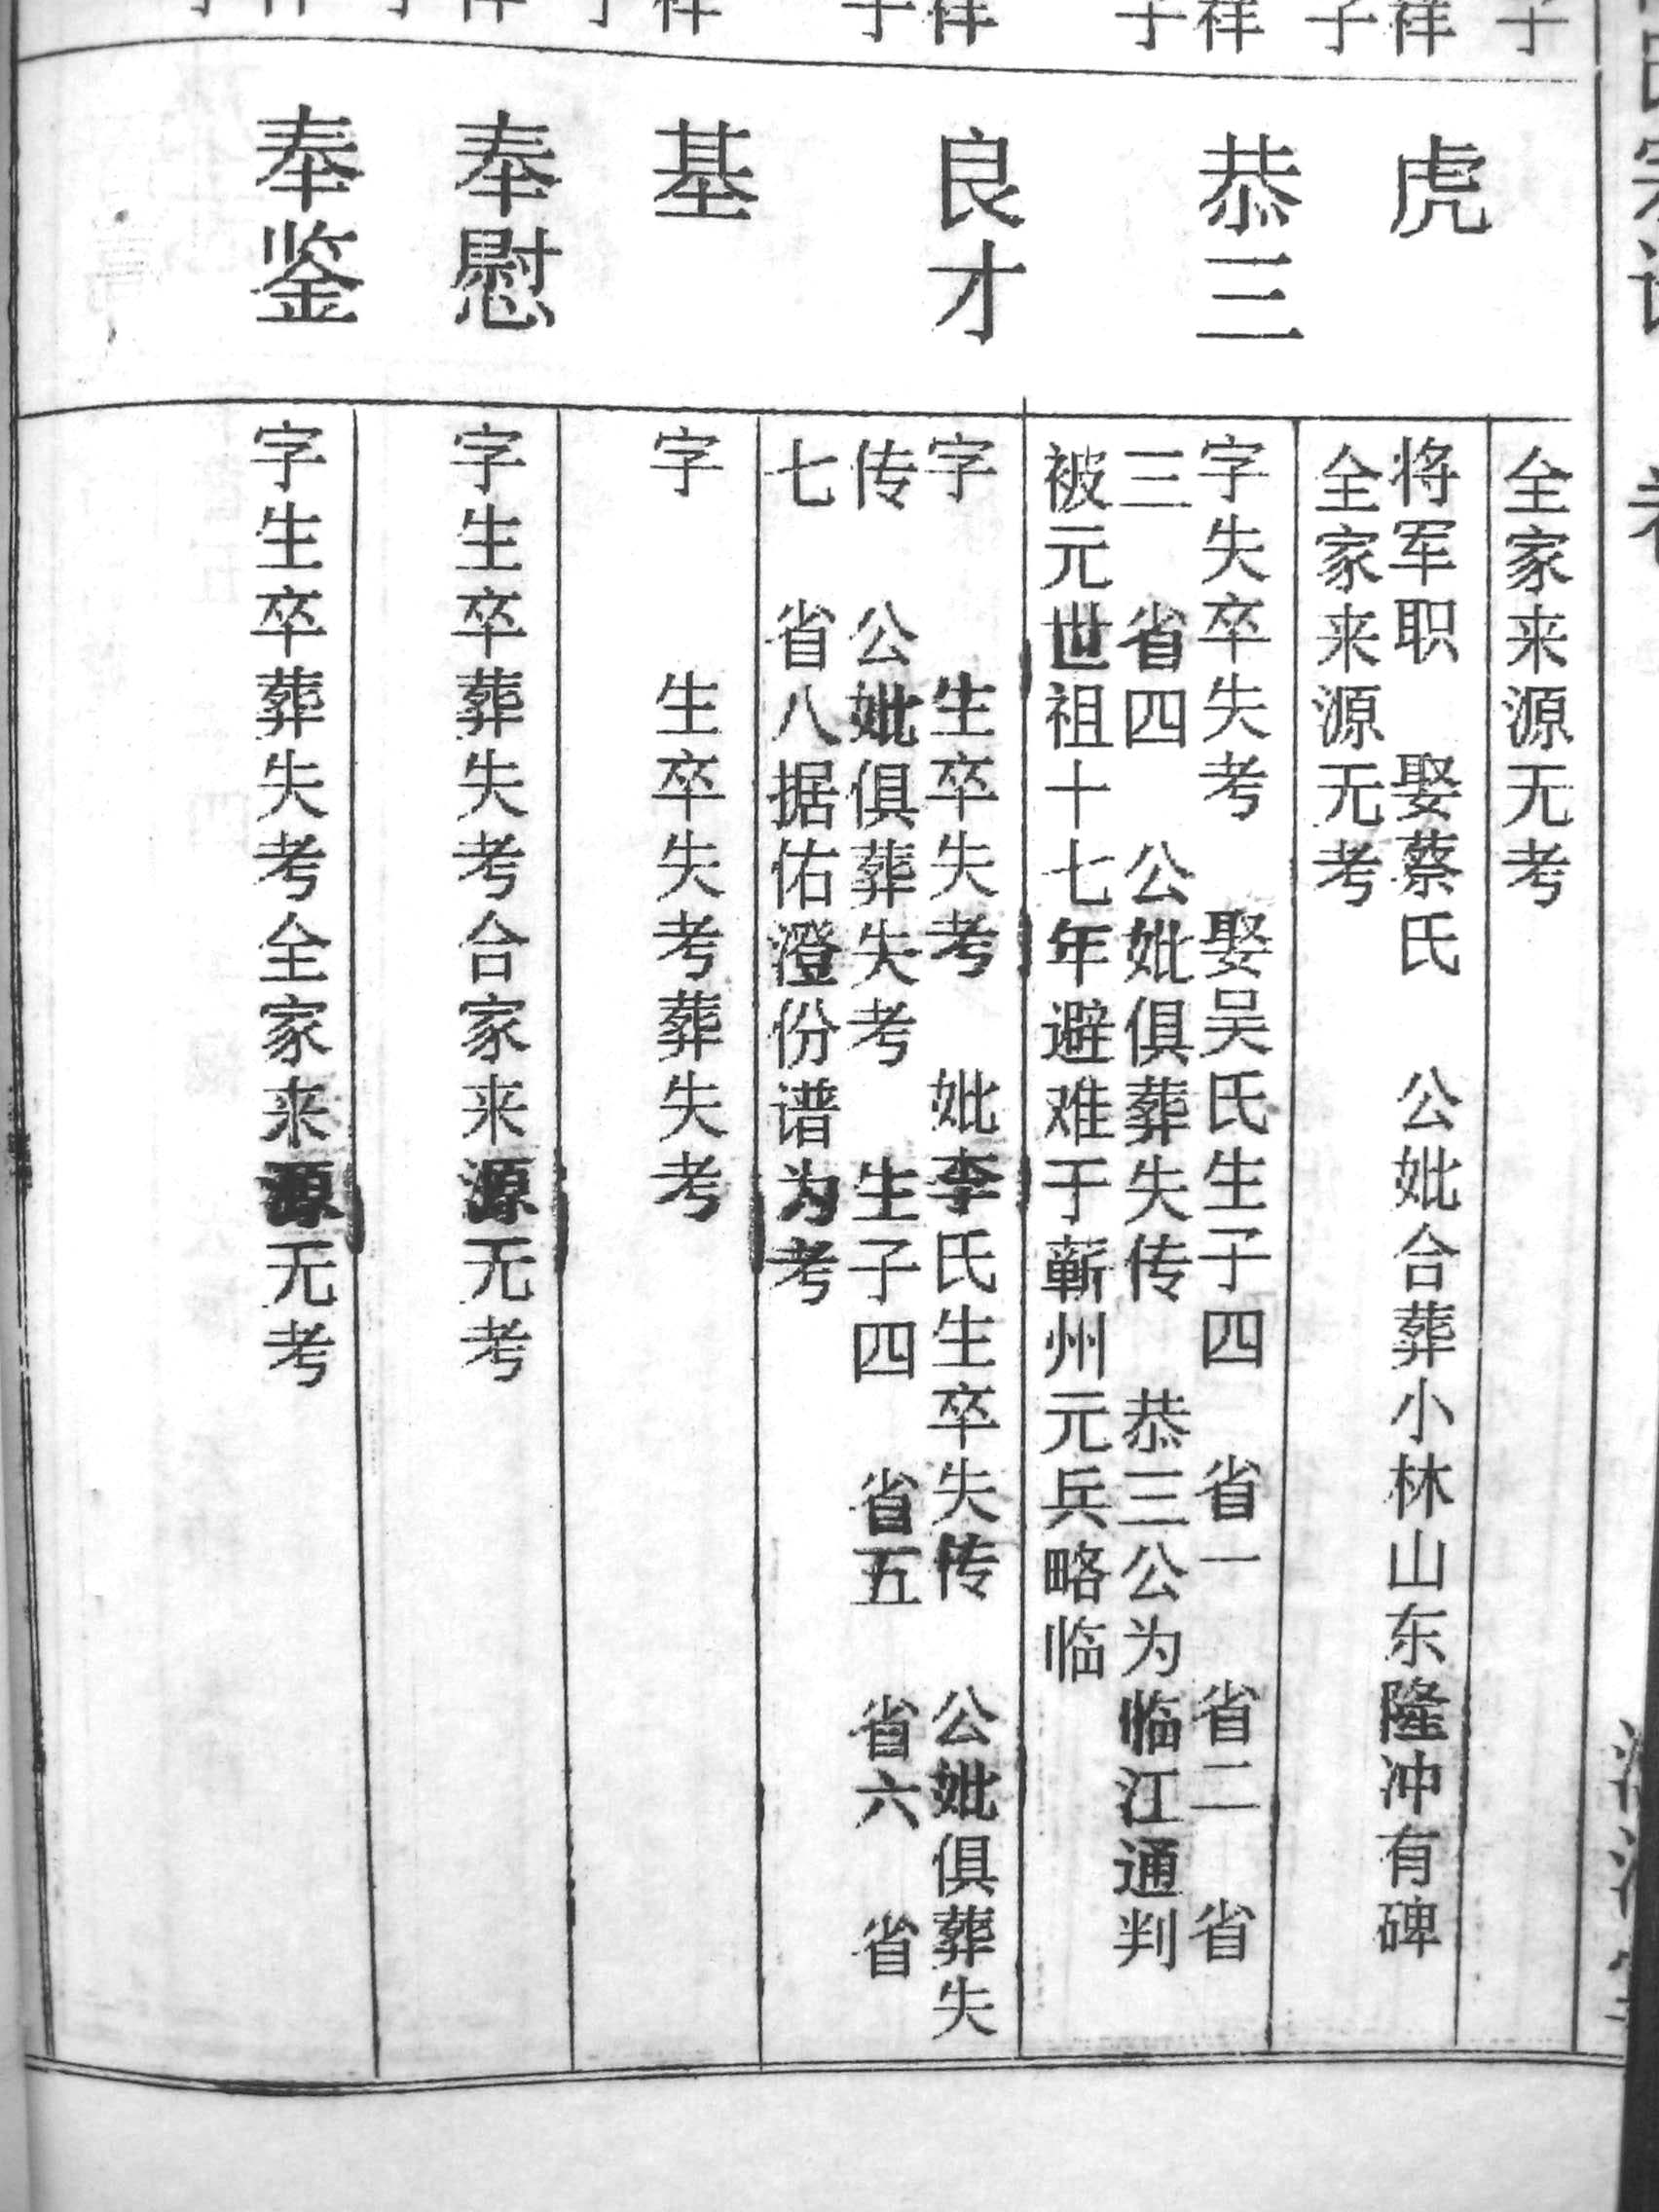 子
祥
子
祥
子
祥
子
祥
全家来源无考
虎
将军职 娶蔡氏 公妣合葬小林山东隆冲有碑
全家来源无考
恭三
字失卒失考 娶吴氏生子四 省一 省二 省
三 省四 公妣俱葬失传 恭三公为临江通判
被元世祖十七年避难于蕲州元兵略临
良才
字 生卒失考 妣李氏生卒失传 公妣俱葬失
传 公妣俱葬失考 生子四 省五 省六 省
七 省八据佑澄份谱为考
基
字 生卒失考葬失考
奉慰
字生卒葬失考合家来源无考
奉鉴
字生卒葬失考全家来源无考